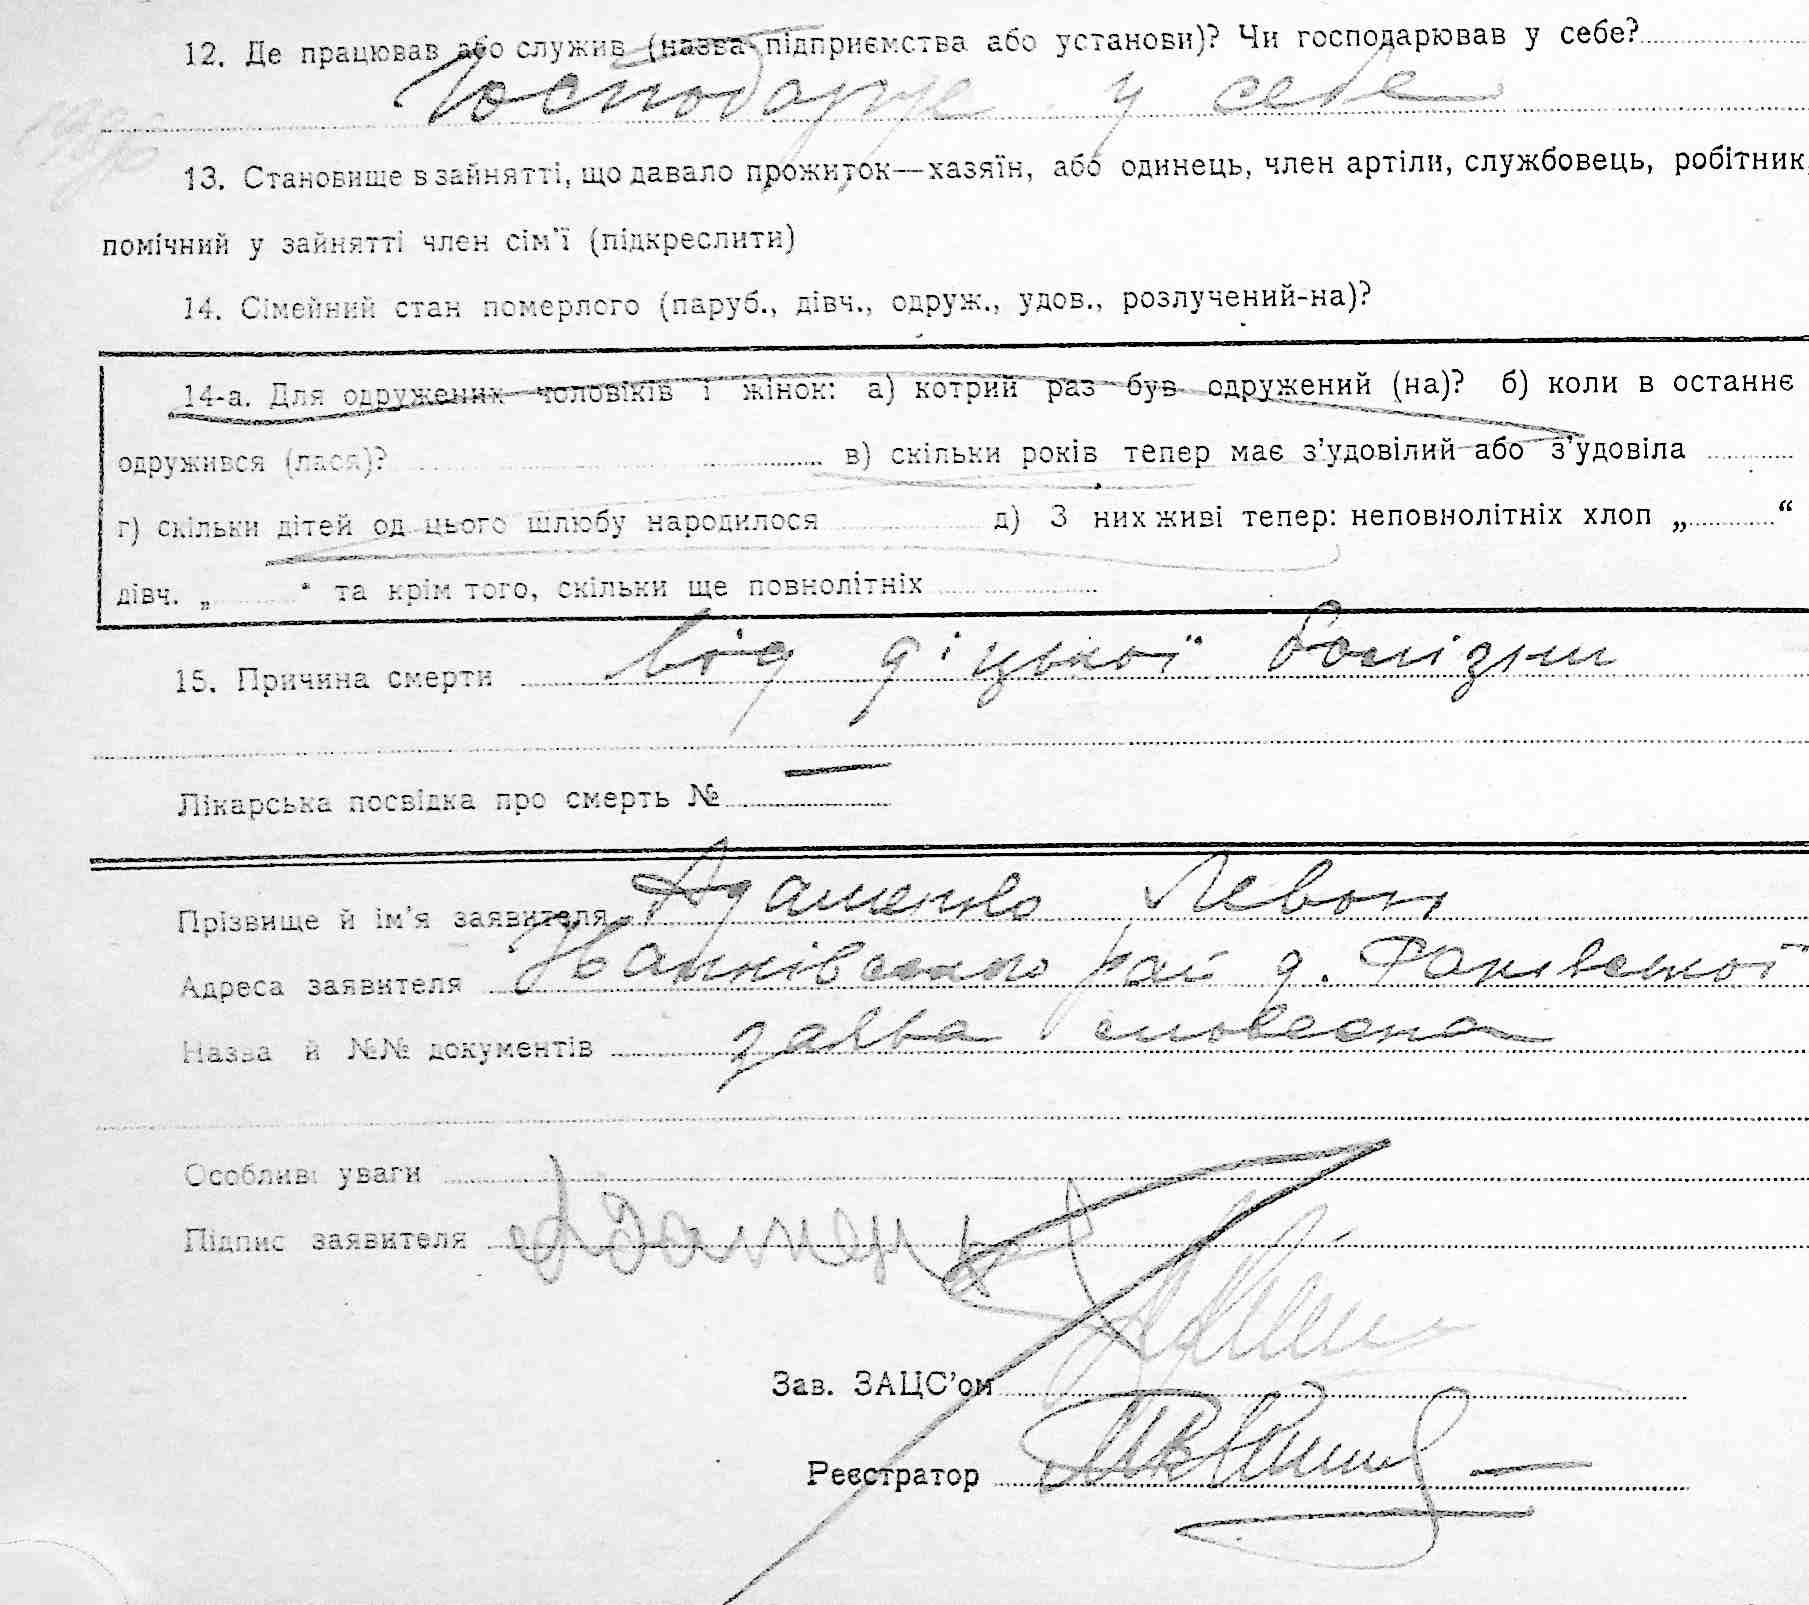 12. Де працював або служив (назва підприємства або установи)? Чи господарював у себе?
Господарує у себе
13. Становище в зайнятті, що давало прожиток—хазяїн, або одинець, член артіли, службовець, робітник,
помічний у зайнятті член сім'ї (підкреслити)
14. Сімейний стан померлого (паруб., дівч., одруж., удов., розлучений-на)?
14-а. Для одружених чоловіків і жінок: а) котрий раз був одружений (на)? б) коли в останнє
одружився (лася)? в) скільки років тепер має з'удовілий або з'удовіла
г) скільки дітей од цього шлюбу народилося д) З них живі тепер: неповнолітніх хлоп „ “
дівч. „ “ та крім того, скільки ще повнолітніх
15. Причина смерти від діцької болізни
Лікарська посвідка про смерть № —
Прізвище й ім'я заявителя Адаменко Левон
Адреса заявителя рай д.
Назва й №№ документів заява словесна
Особливі уваги
Підпис заявителя Адаменко
Зав. ЗАЦС'ом
Реєстратор